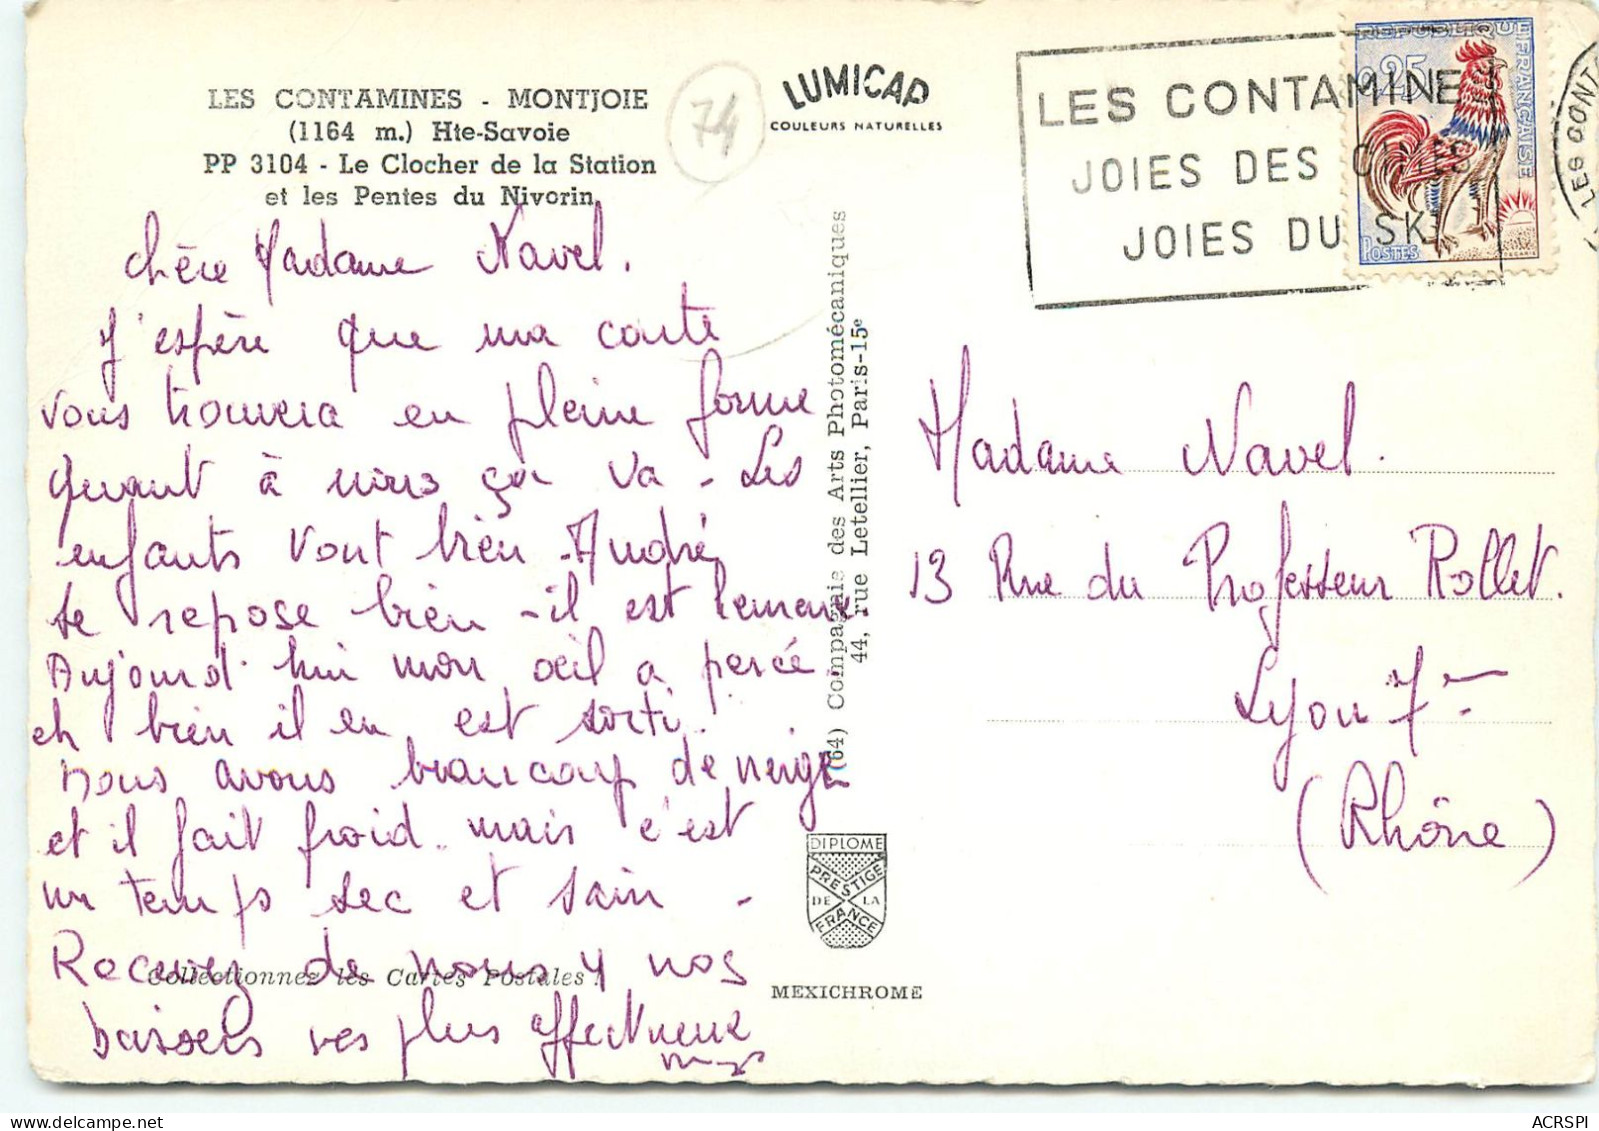 LES CONTAMINES - MONTJOIE
(1164 m.) Hte-Savoie
PP 3104 - Le Clocher de la Station
et les Pentes du Nivorin.
74
LUMICAP
COULEURS NATURELLES
LES CONTAMINE
JOIES DES CIMES
JOIES DU SKI
REPUBLIQUE FRANÇAISE
0,25
POSTES
DECARIS
LES CONT
chère Madame Navel.
J'espère que ma carte
vous trouvera en pleine forme
quant à nous ça va - Les
enfants vont bien - André
se repose bien - il est
Aujourd'hui mon œil a percé
eh bien il en est sorti.
nous avons beaucoup de neige
et il fait froid. mais c'est
un temps sec et sain -
Recevez de nous 4 nos
baisers les plus affectueux
Collectionnez les Cartes Postales !
(64) Compagnie des Arts Photomécaniques
44, rue Letellier, Paris-15e
DIPLOME
PRESTIGE
DE LA
FRANCE
MEXICHROME
Madame Navel.
13 Rue du Professeur Rollet.
Lyon 7e
(Rhône)
ACRSPI